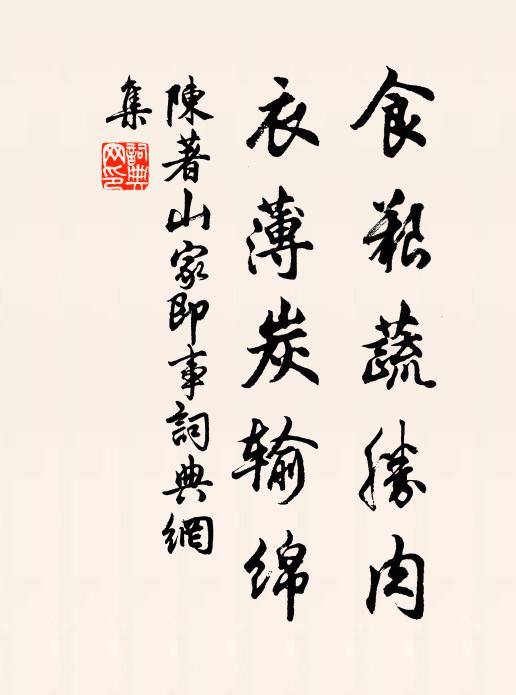 食艱蔬勝肉
衣薄炭输绵
陳著山家即事詞典網
集
詞典
网印